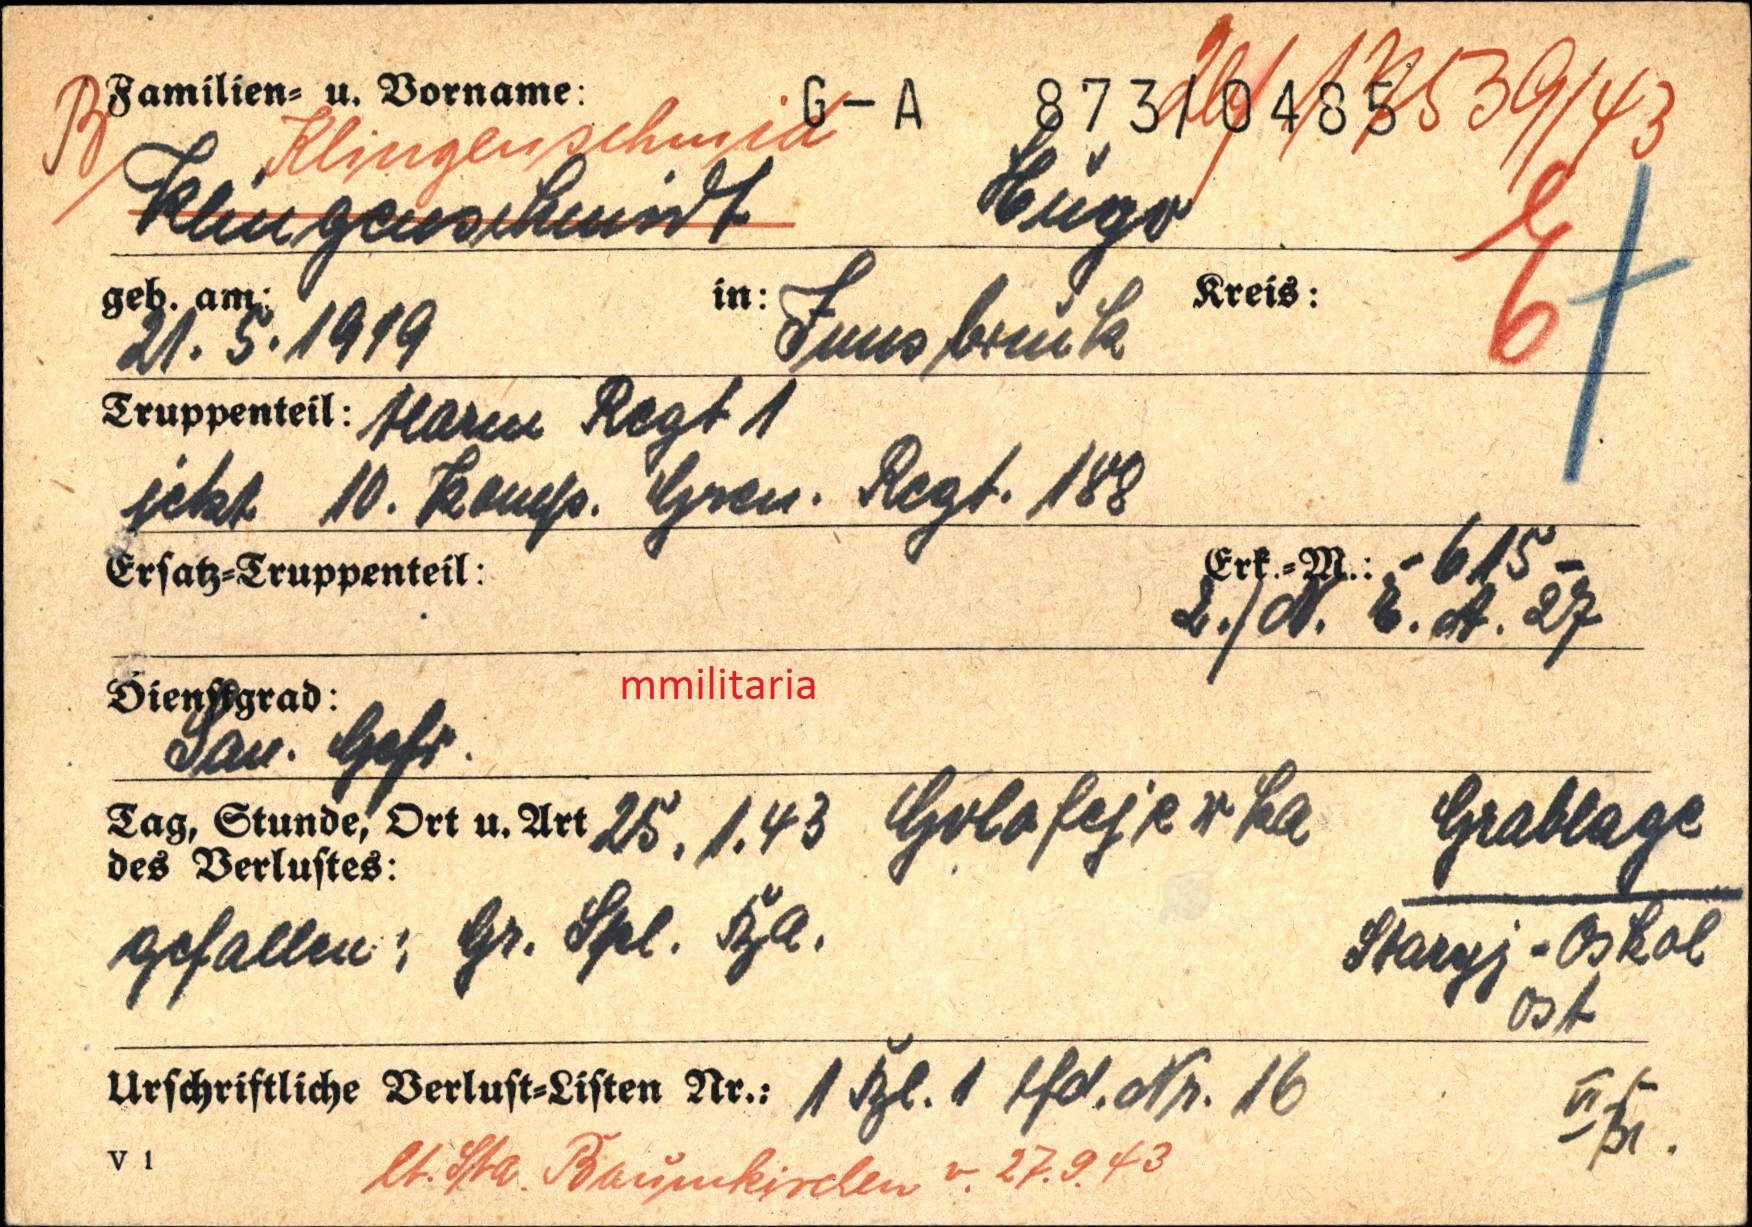 B Familien- u. Vorname: G-A 873/0485
Klingenschmid
Klingenschmidt Hugo
geb. am: in: Kreis:
21. 5. 1919 Innsbruck
Truppenteil: Regt 1
jetzt 10. Komp. Gren. Regt. 188
Ersatz-Truppenteil: Erk.-M.: -615-
2./N. E. A. 27
mmilitaria
Dienstgrad:
San. Gefr.
Tag, Stunde, Ort u. Art 25. 1. 43 Golofejewka Grablage
des Verlustes:
gefallen; Gr. Spl. Staryj-Oskol
Ost
Urschriftliche Verlust-Listen Nr.: 1 1 lfd. Nr. 16
V 1
lt. Sta. Baumkirchen v. 27.9.43